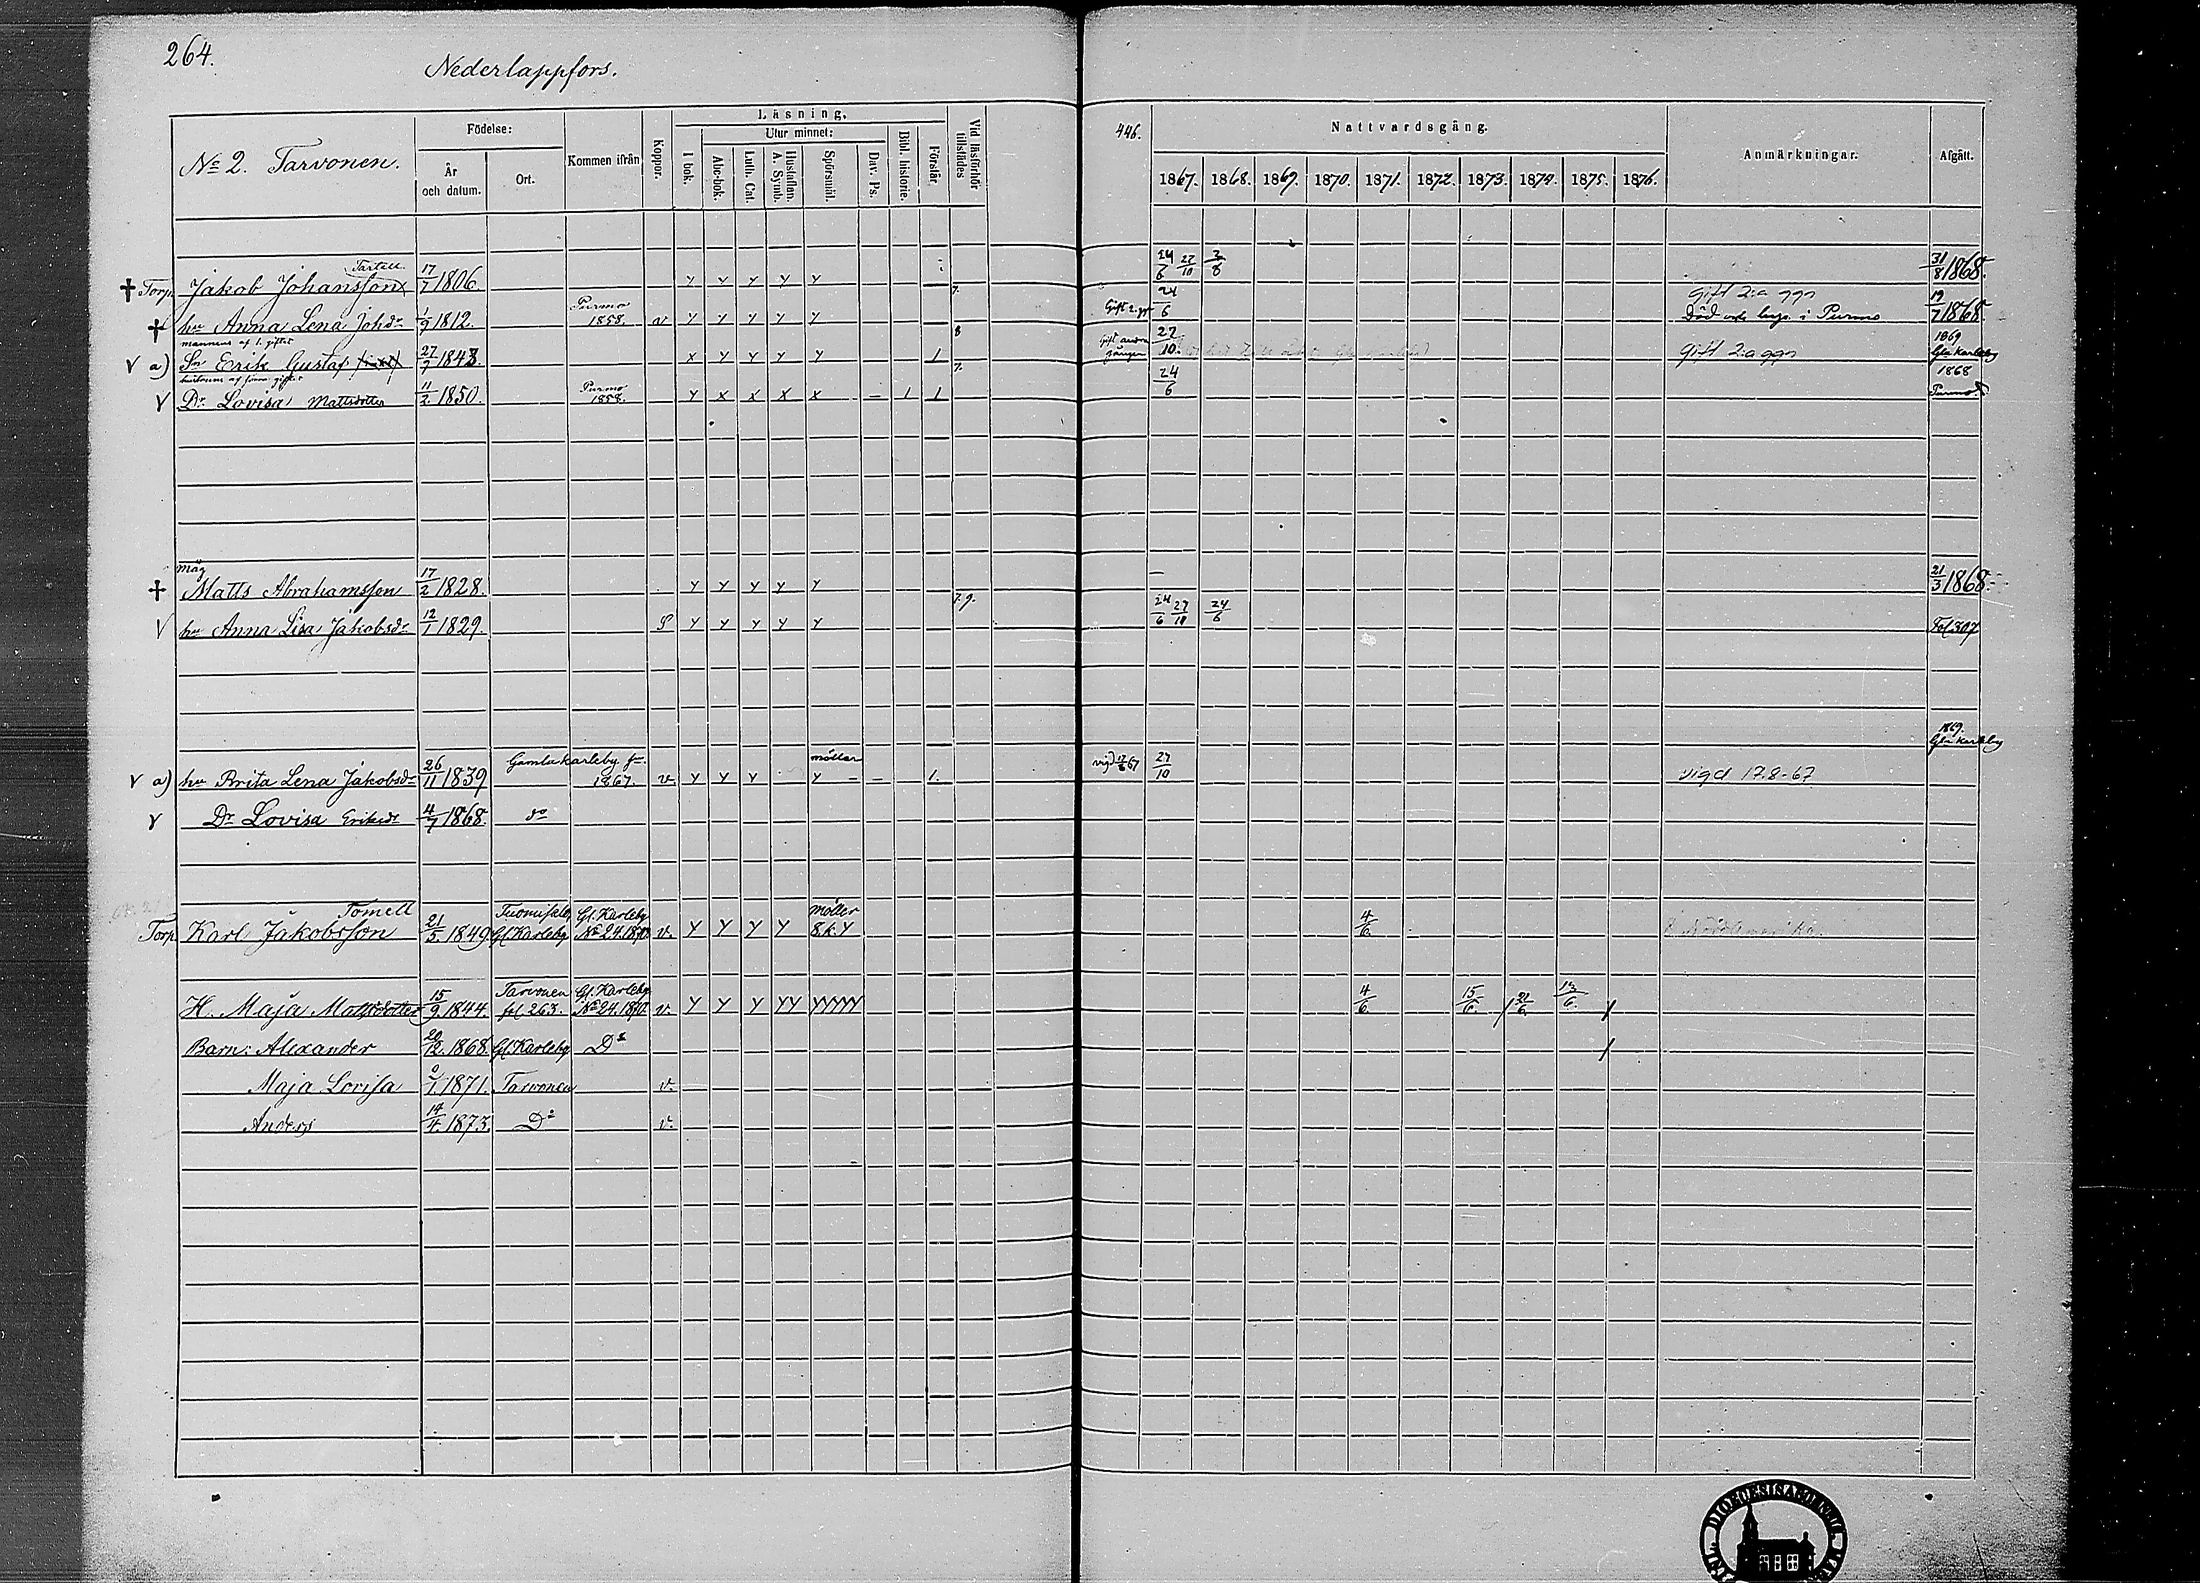 264.
Nederlappfors.
No 2. Tarvonen.
Födelse:
År och datum.
Ort.
Kommen ifrån
Koppor.
Läsning.
I bok.
Utur minnet:
Abc-bok.
Luth. Cat.
Hustaflan. A. Symb.
Spörsmål.
Dav. Ps.
Bibl. historie.
Förstår.
Vid läsförhör tillstädes
446.
Nattvardsgång.
1867. 1868. 1869. 1870. 1871. 1872. 1873. 1874. 1875. 1876.
Anmärkningar.
Afgått.
† Torp. Jakob Johansson 17/7 1806. y y y y y 24/6 27/10 31/8 1868.
† hu Anna Lena Johdr 1/9 1812. Purmo 1858. v y y y y y 7. Gift 2. gg 24/6 Gift 2:a ggn Död och begr. i Purmo 19/7 1868.
mannens af 1. giftet
v a) Sn Erik Gustaf 27/9 1843. x y y y y 1 8 Gift andra gången 27/10. Gift 2:a ggn 1869 Gla Karleby
hustruns af förra giftet
v Dr Lovisa Mattsdotter 11/2 1850. Purmo 1858. y x x x x – 1 1 7. 24/6 1868 Purmo
måg
† Matts Abrahamsson 17/2 1828. y y y y y – 21/3 1868.
v hu Anna Lisa Jakobsdr 12/1 1829. S y y y y y 7.9. 24/6 27/10 24/6 Fol. 307
v a) hu Brita Lena Jakobsdr 26/11 1839 Gamlakarleby fn. 1867. v. y y y möllar y – – 1. vigd 17/8 67 27/10 vigd 17.8-67 1869. Gla Karleby
v Dr Lovisa Eriksdr 4/7 1868. do
Tomell
Torp. Karl Jakobsson 21/5. 1849. Gl. Karleby Gl. Karleby No 24. 1870. v. y y y y möller S.k. y 4/6.
H. Maja Mattsdotter 15/9. 1844. Tarvonen fol. 263. Gl. Karleby No 24. 1870. v. y y y yy yyyyy 4/6. 15/6. / 21/6. 13/6. /
Barn: Alexander 20/12. 1868. Gl. Karleby Do /
Maja Lovisa 1871. Tarvonen v.
Anders 14/4. 1873. Do v.